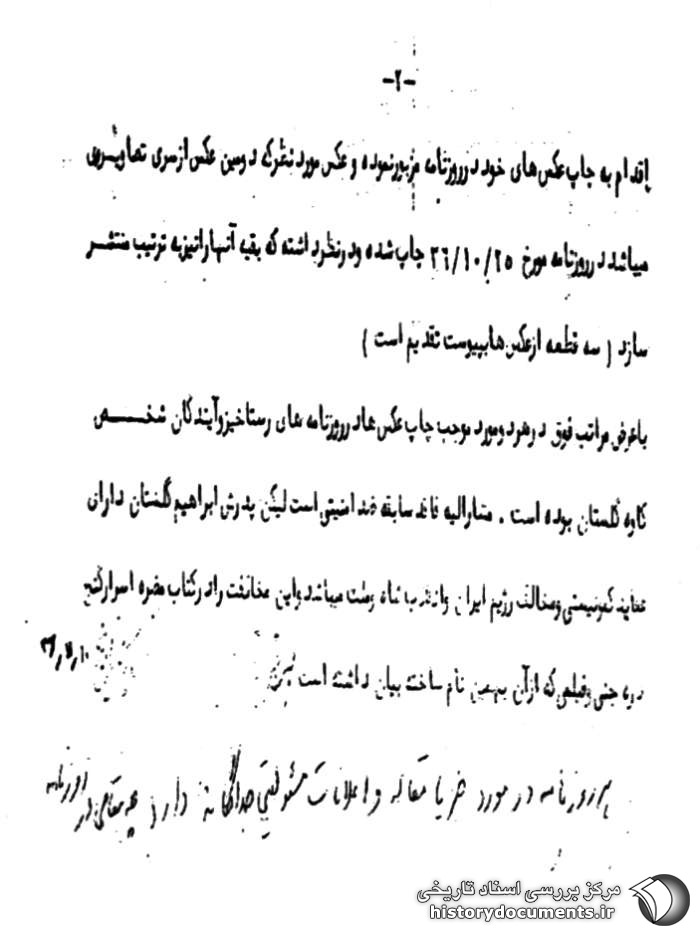 -۲-
اقدام به چاپ عکس‌های خود در روزنامه مزبور نموده و عکس مورد نظر که دومین عکس از سری تصاویری
میباشد در روزنامه مورخ ۲۶/۱۰/۲۵ چاپ شده و در نظر داشته که بقیه آنها را نیز به ترتیب منتشر
سازد ( سه قطعه از عکس ها بپیوست تقدیم است )
باعرض مراتب فوق در هر دو مورد موجب چاپ عکس ها در روزنامه های رستاخیز و آیندگان شخص
کاوه گلستان بوده است . مشارالیه فاقد سابقه ضد امنیتی است لیکن پدرش ابراهیم گلستان دارای
عقاید کمونیستی و مخالف رژیم ایران و انقلاب شاه و ملت میباشد و این مخالفت را در کتاب مضره اسرار گنج
دره جنی و فیلمی که از آن بهمین نام ساخته بیان داشته است
روزنامه در مورد خبر یا مقاله و اعلانات مسئولیتی جداگانه دارد چه مقامی در روزنامه
مرکز بررسی اسناد تاریخی
historydocuments.ir